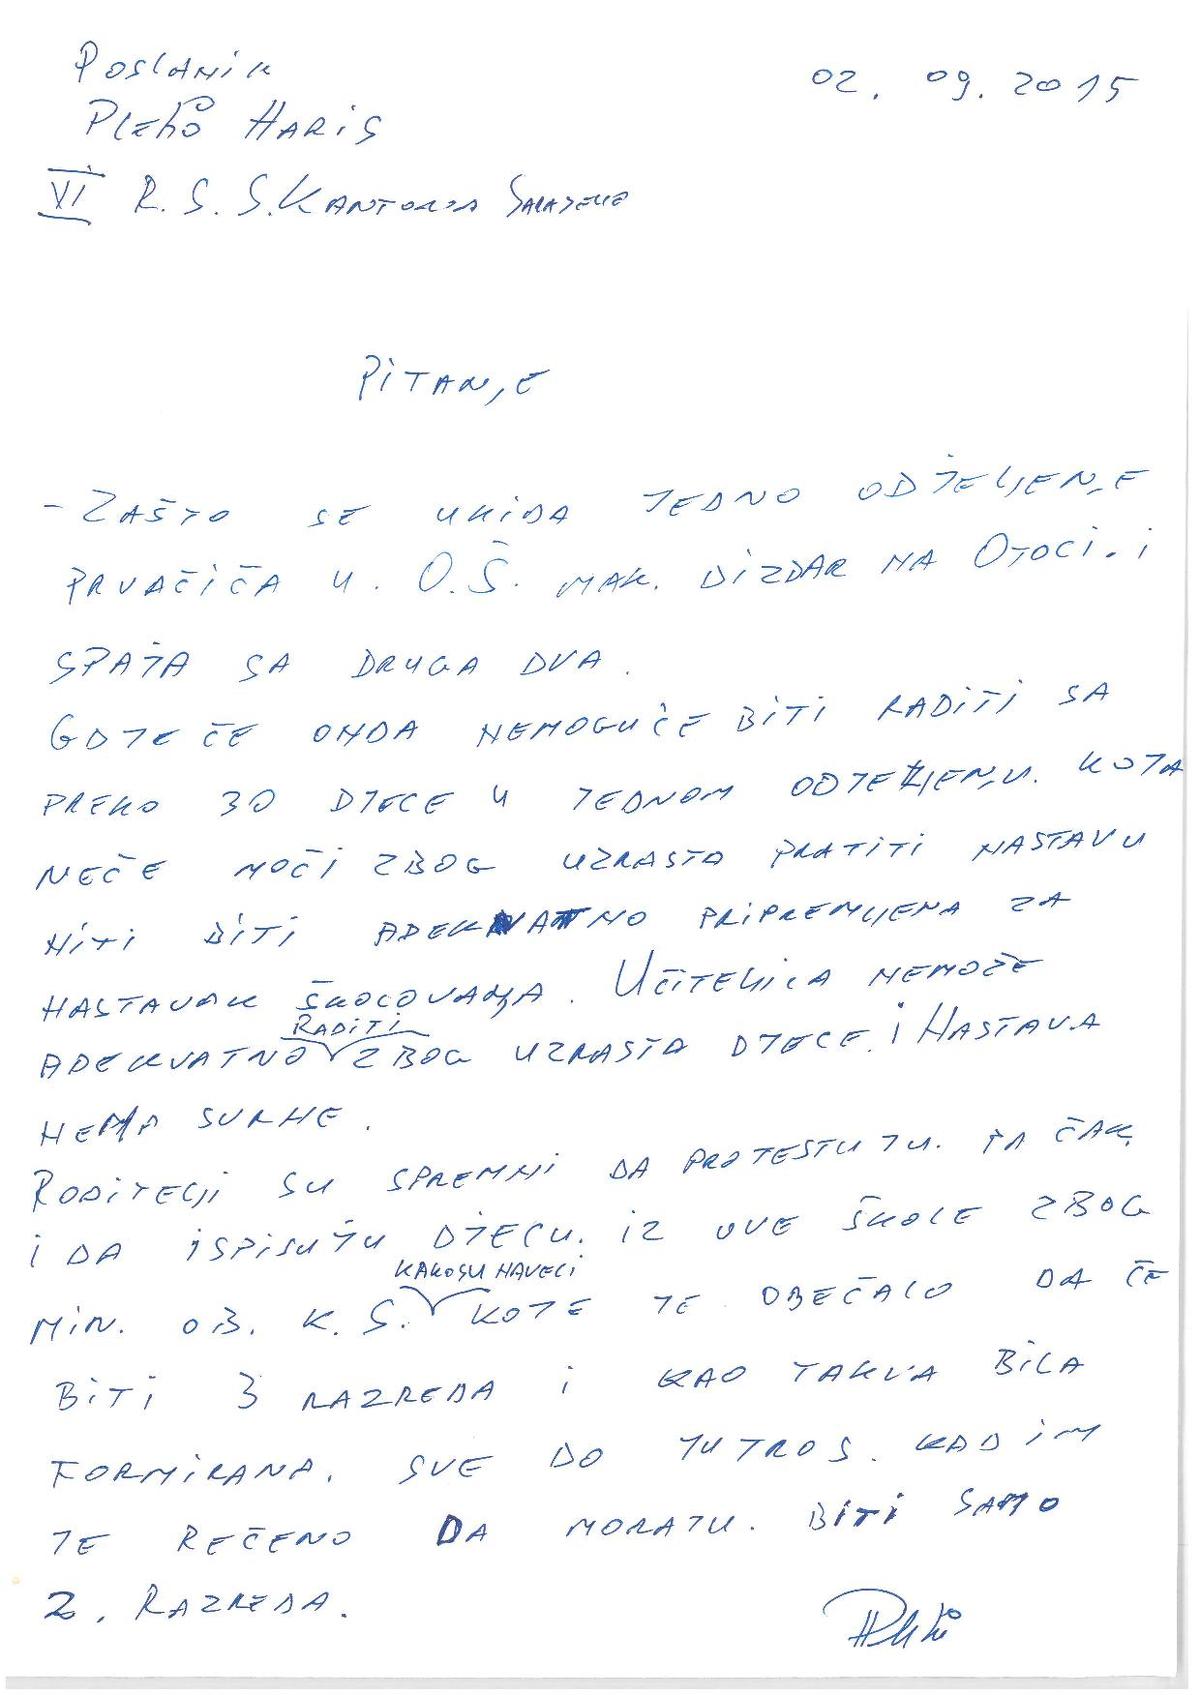 Poslanik
02. 09. 2015
Pleho Haris
VI R.S.S. Kantona Sarajevo
PITANJE
- ZAŠTO SE UKIDA JEDNO ODJELJENJE
PRVAČIĆA U. O.Š. MAK. DIZDAR NA OTOCI. I
SPAJA SA DRUGA DVA.
GDJE ČE ONDA NEMOGUČE BITI RADITI SA
PREKO 30 DJECE U JEDNOM ODJELJENJU. KOJA
NEČE MOČI ZBOG UZRASTA PRATITI NASTAVU
NITI BITI ADEKVATNO PRIPREMLJENA ZA
NASTAVAK ŠKOLOVANJA. UČITELJICA NEMOŽE
RADITI
ADEKVATNO ZBOG UZRASTA DJECE. I NASTAVA
NEMA SVRHE.
RODITELJI SU SPREMNI DA PROTESTUJU. PA ČAK
I DA ISPISUJU DJECU. IZ OVE ŠKOLE ZBOG
KAKO SU NAVELI
MIN. OB. K. S. KOJE JE OBEČALO DA ČE
BITI 3 RAZREDA I KAO TAKVA BILA
FORMIRANA. SVE DO JUTROS. KAD IM
JE REČENO DA MORAJU. BITI SAMO
2. RAZREDA.